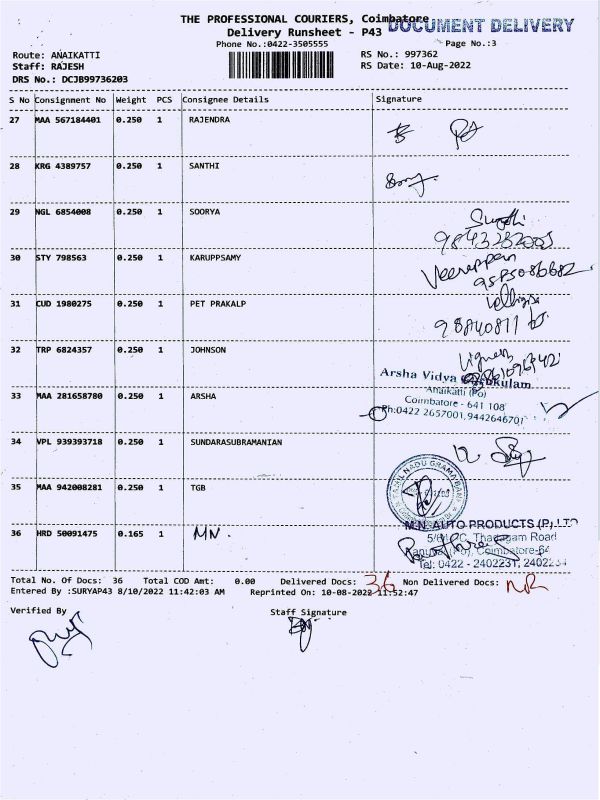 THE PROFESSIONAL COURIERS, Coimbatore
DOCUMENT DELIVERY
Delivery Runsheet - P43
Phone No.:0422-3505555
Page No.:3
Route: ANAIKATTI
RS No.: 997362
Staff: RAJESH
RS Date: 10-Aug-2022
DRS No.: DCJB99736203
S No Consignment No Weight PCS Consignee Details Signature
27 MAA 567184401 0.250 1 RAJENDRA
28 KRG 4389757 0.250 1 SANTHI
29 NGL 6854008 0.250 1 SOORYA
30 STY 798563 0.250 1 KARUPPSAMY
Veerappan
31 CUD 1980275 0.250 1 PET PRAKALP
32 TRP 6824357 0.250 1 JOHNSON
33 MAA 281658780 0.250 1 ARSHA
Arsha Vidya Gurukulam
Anaikatti (Po)
Coimbatore - 641 108
Ph:0422 2657001, 9442646701
34 VPL 939393718 0.250 1 SUNDARASUBRAMANIAN
35 MAA 942008281 0.250 1 TGB
TAMIL NADU GRAMA BANK
36 HRD 50091475 0.165 1 MN.
M.N. AUTO PRODUCTS (P) LTD
Thadagam Road
Coimbatore-64
Tel: 0422 - 2402231
Total No. Of Docs: 36 Total COD Amt: 0.00 Delivered Docs: 36 Non Delivered Docs: NR
Entered By :SURYAP43 8/10/2022 11:42:03 AM Reprinted On: 10-08-2022 11:52:47
Verified By Staff Signature